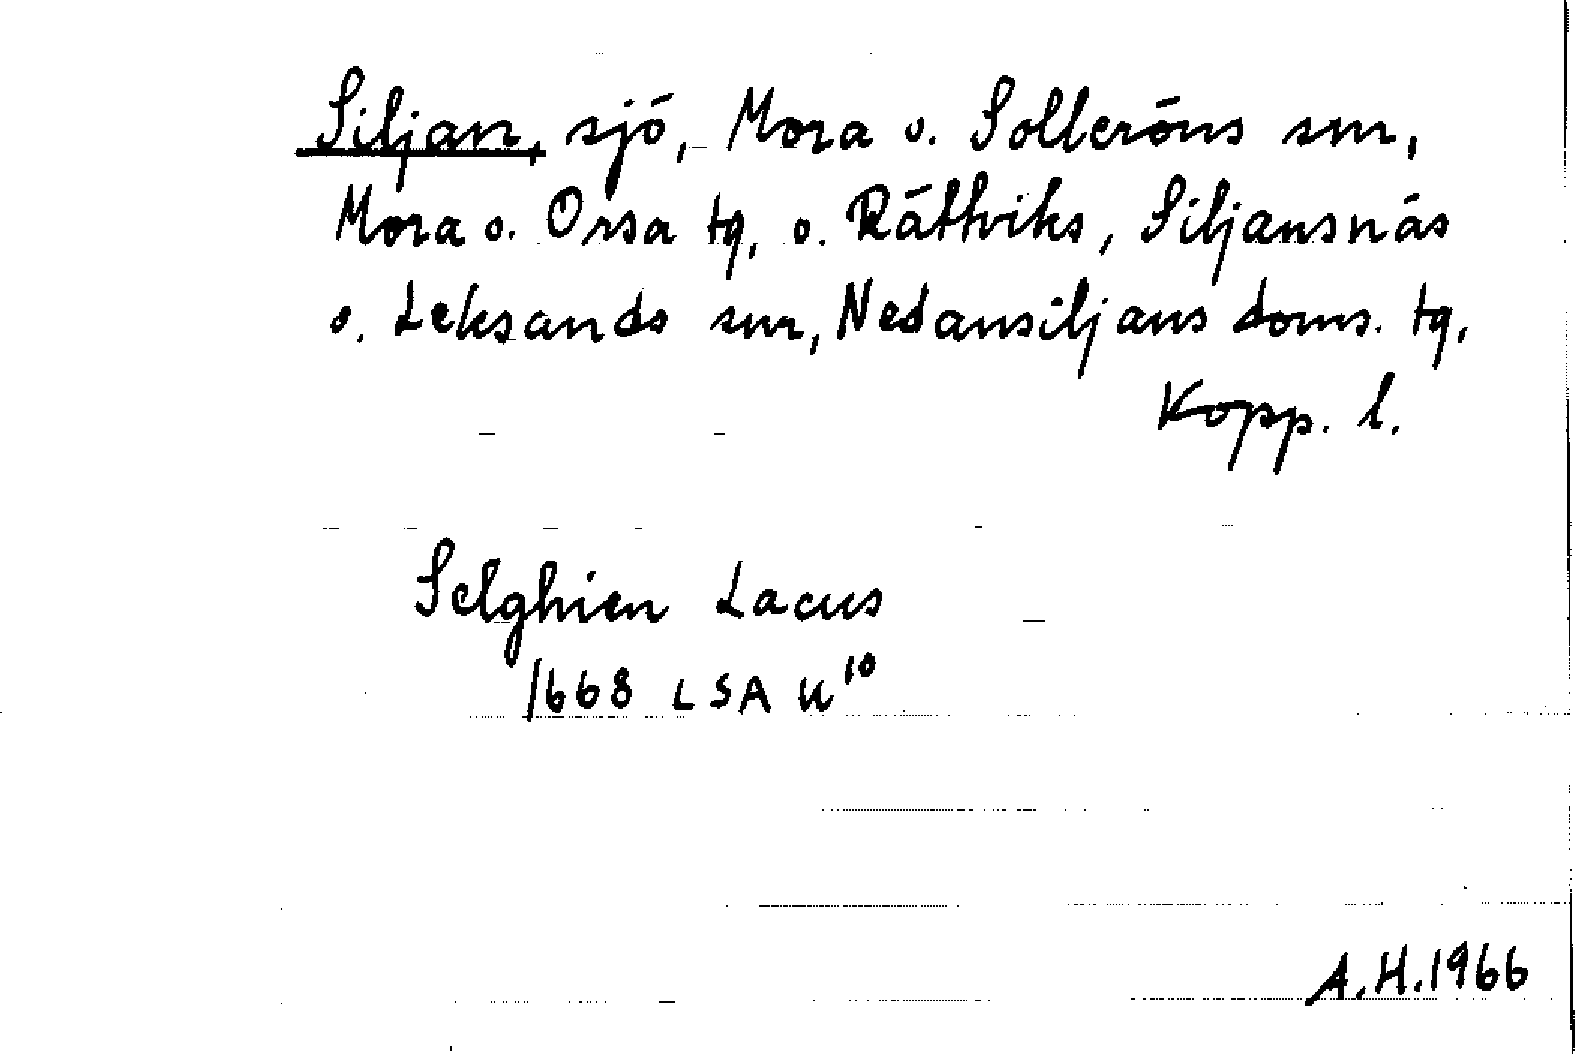 Siljan, sjö, Mora o. Solleröns snr,
Mora o. Orsa tg, o. Rättviks, Siljansnäs
o. Leksands snr, Nedansiljans doms. tg,
Kopp. l.
Selghien Lacus
1668 LSA K¹⁰
A.H.1966